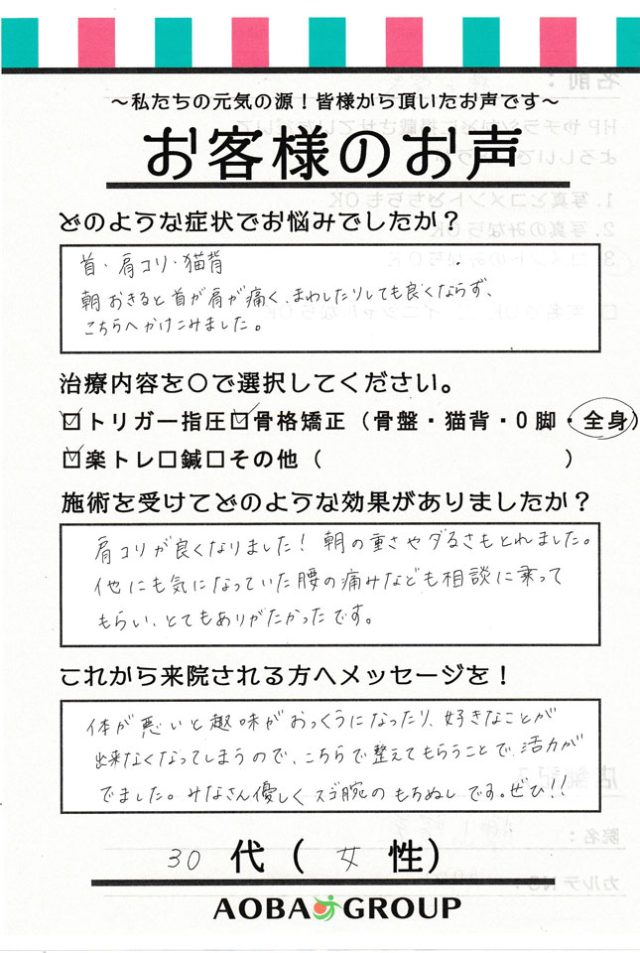 ～私たちの元気の源！皆様から頂いたお声です～
お客様のお声
どのような症状でお悩みでしたか？
首・肩コリ・猫背
朝おきると首が肩が痛く、まわしたりしても良くならず、
こちらへかけこみました。
治療内容を〇で選択してください。
☑トリガー指圧☑骨格矯正（骨盤・猫背・O脚・全身）
☑楽トレ□鍼□その他（　　　　　　　　　　）
施術を受けてどのような効果がありましたか？
肩コリが良くなりました！朝の重さやダルさもとれました。
他にも気になっていた腰の痛みなども相談に乗って
もらい、とてもありがたかったです。
これから来院される方へメッセージを！
体が悪いと趣味がおっくうになったり、好きなことが
出来なくなってしまうので、こちらで整えてもらうことで、活力が
でました。みなさん優しくスゴ腕のもちぬしです。ぜひ!!
30代（女性）
AOBA GROUP